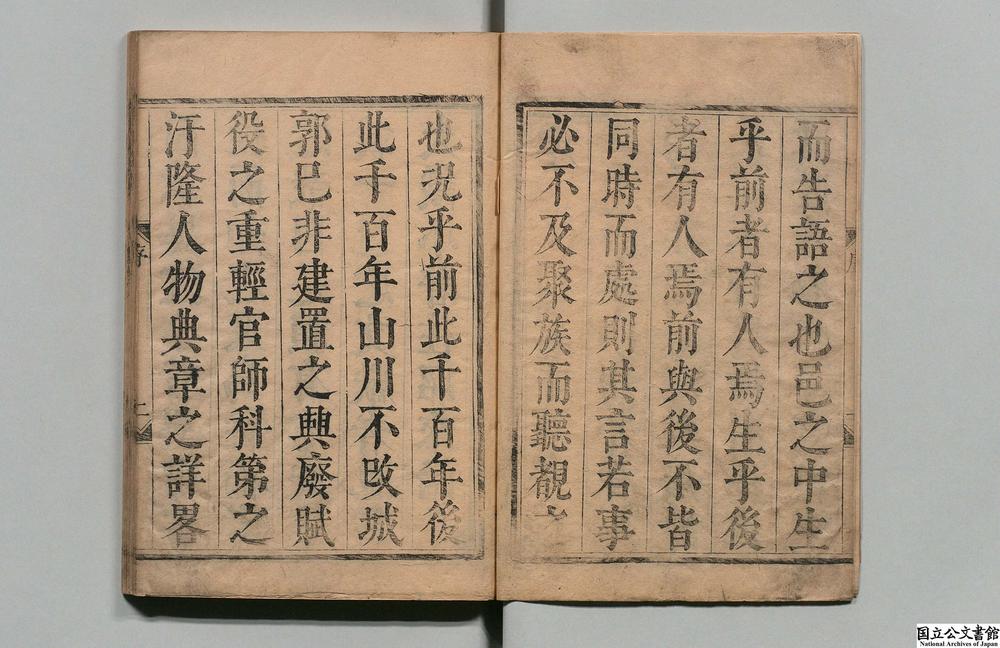 而告語之也邑之中生
乎前者有人焉生乎後
者有人焉前與後不皆
同時而處則其言若事
必不及聚族而聽覩之
也况乎前此千百年後
此千百年山川不改城
郭已非建置之興廢賦
役之重輕官師科第之
汙隆人物典章之詳畧
序
二
国立公文書館
National Archives of Japan